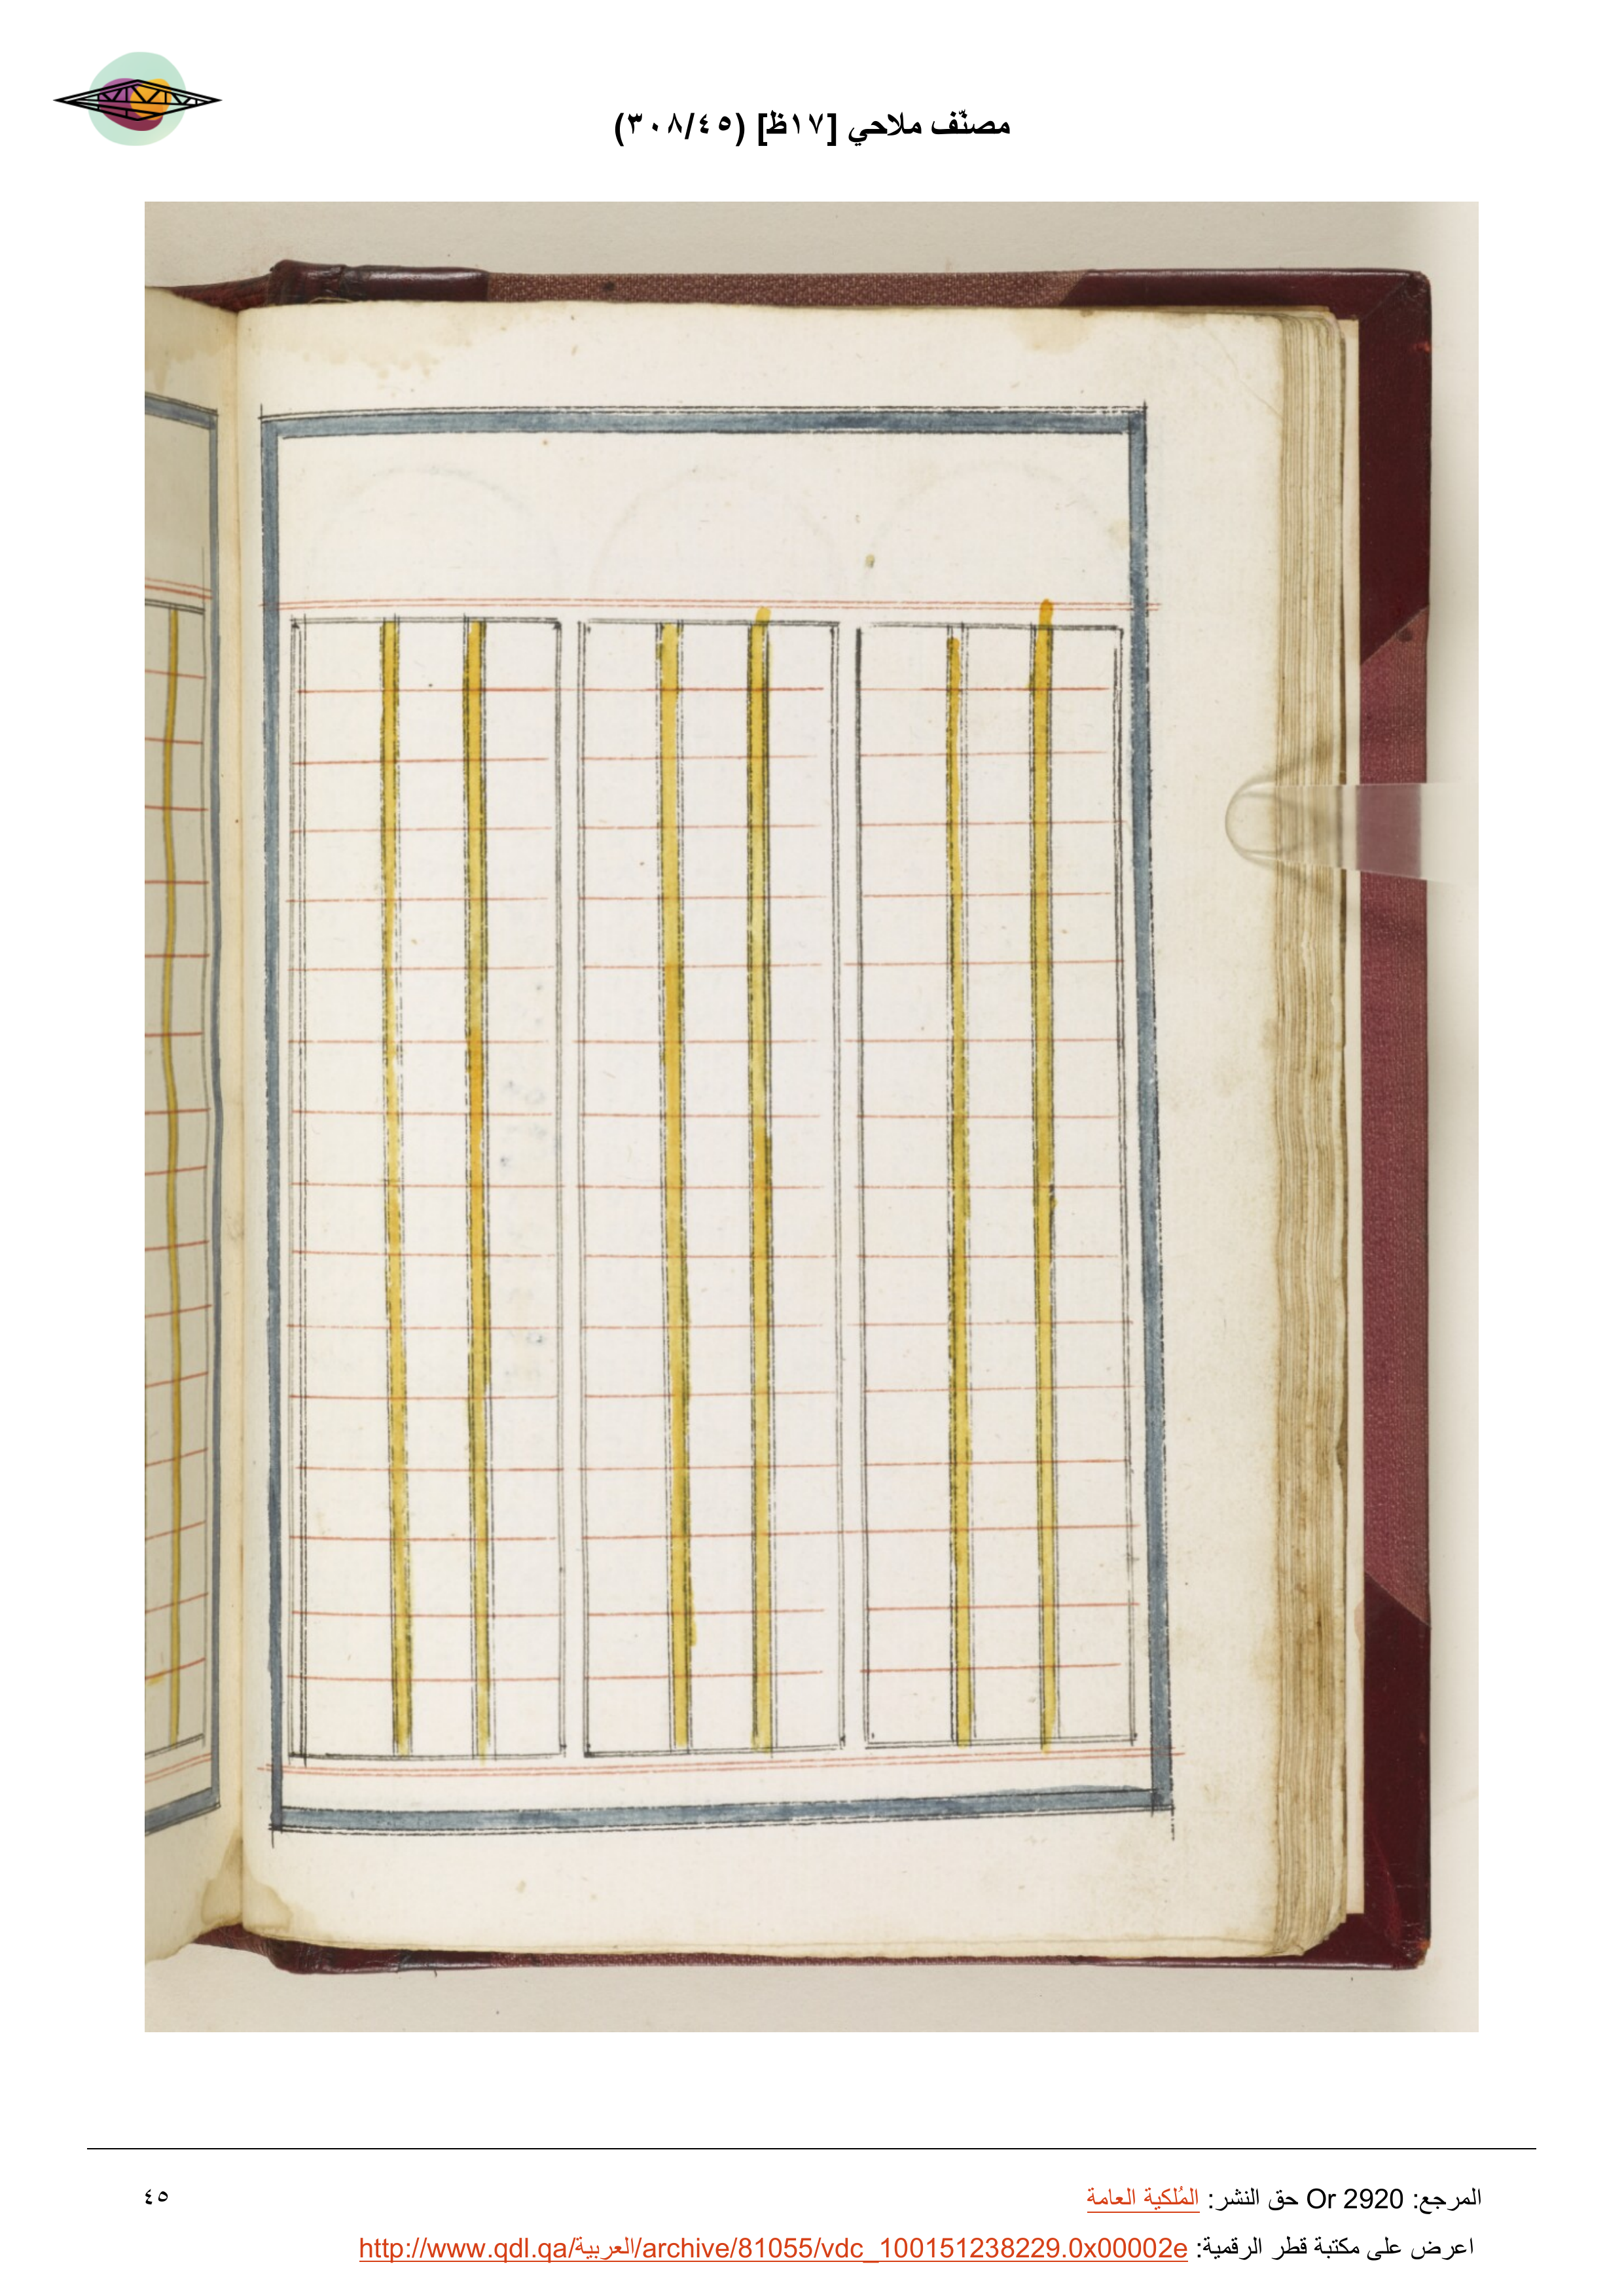 مصنّف ملاحي [١٧ظ] (٣٠٨/٤٥)
المرجع: Or 2920 حق النشر: المُلكية العامة
٤٥
اعرض على مكتبة قطر الرقمية: http://www.qdl.qa/العربية/archive/81055/vdc_100151238229.0x00002e